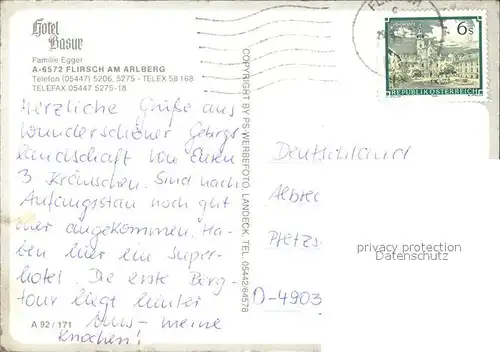 Hotel
Basur
Familie Egger
A-6572 FLIRSCH AM ARLBERG
Telefon (05447) 5206, 5275 - TELEX 58 168
TELEFAX 05447 5275-18
Herzliche Grüße aus
wunderschöner Gebirgs
landschaft von Euren
3 Kränschen. Sind nach
Anfangsstau noch gut
hier angekommen. Ha-
ben hier ein Super-
hotel. Die erste Berg-
tour liegt hinter
uns - meine
Knochen!
A 92/171
COPYRIGHT BY PS-WERBEFOTO, LANDECK, TEL. 05442/64578
6s
REPUBLIK ÖSTERREICH
Deutschland
Albrec
D-4903
privacy protection
Datenschutz